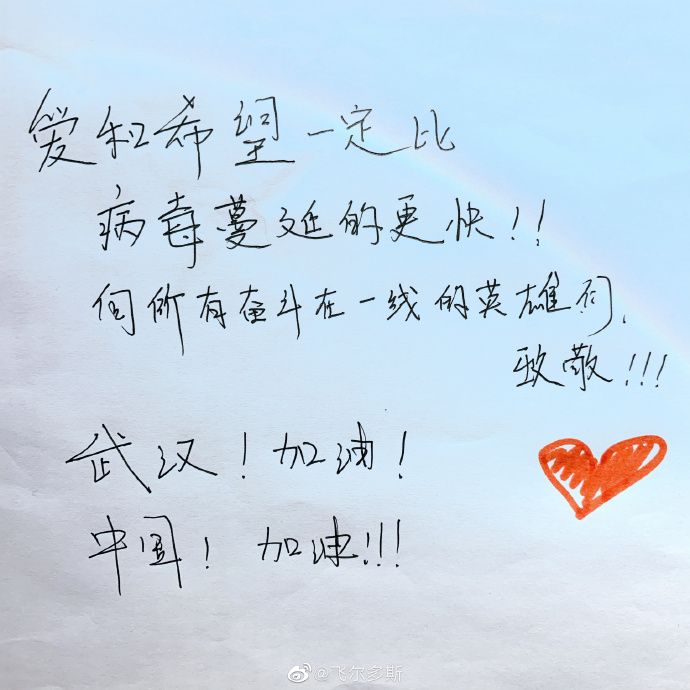 爱和希望一定比
病毒蔓延的更快!!
向所有奋斗在一线的英雄们,
致敬!!!
武汉!加油!
中国!加油!!!
@飞尔多斯